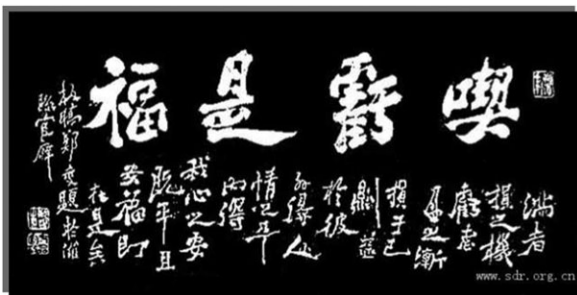 喫虧是福
滿者
損之機
虧者
盈之漸
損于己
則益
於彼
外得人
情之平
內得
我心之安
既平且
安福即
在是矣
板橋鄭燮題於濰
縣官廨
www.sdr.org.cn